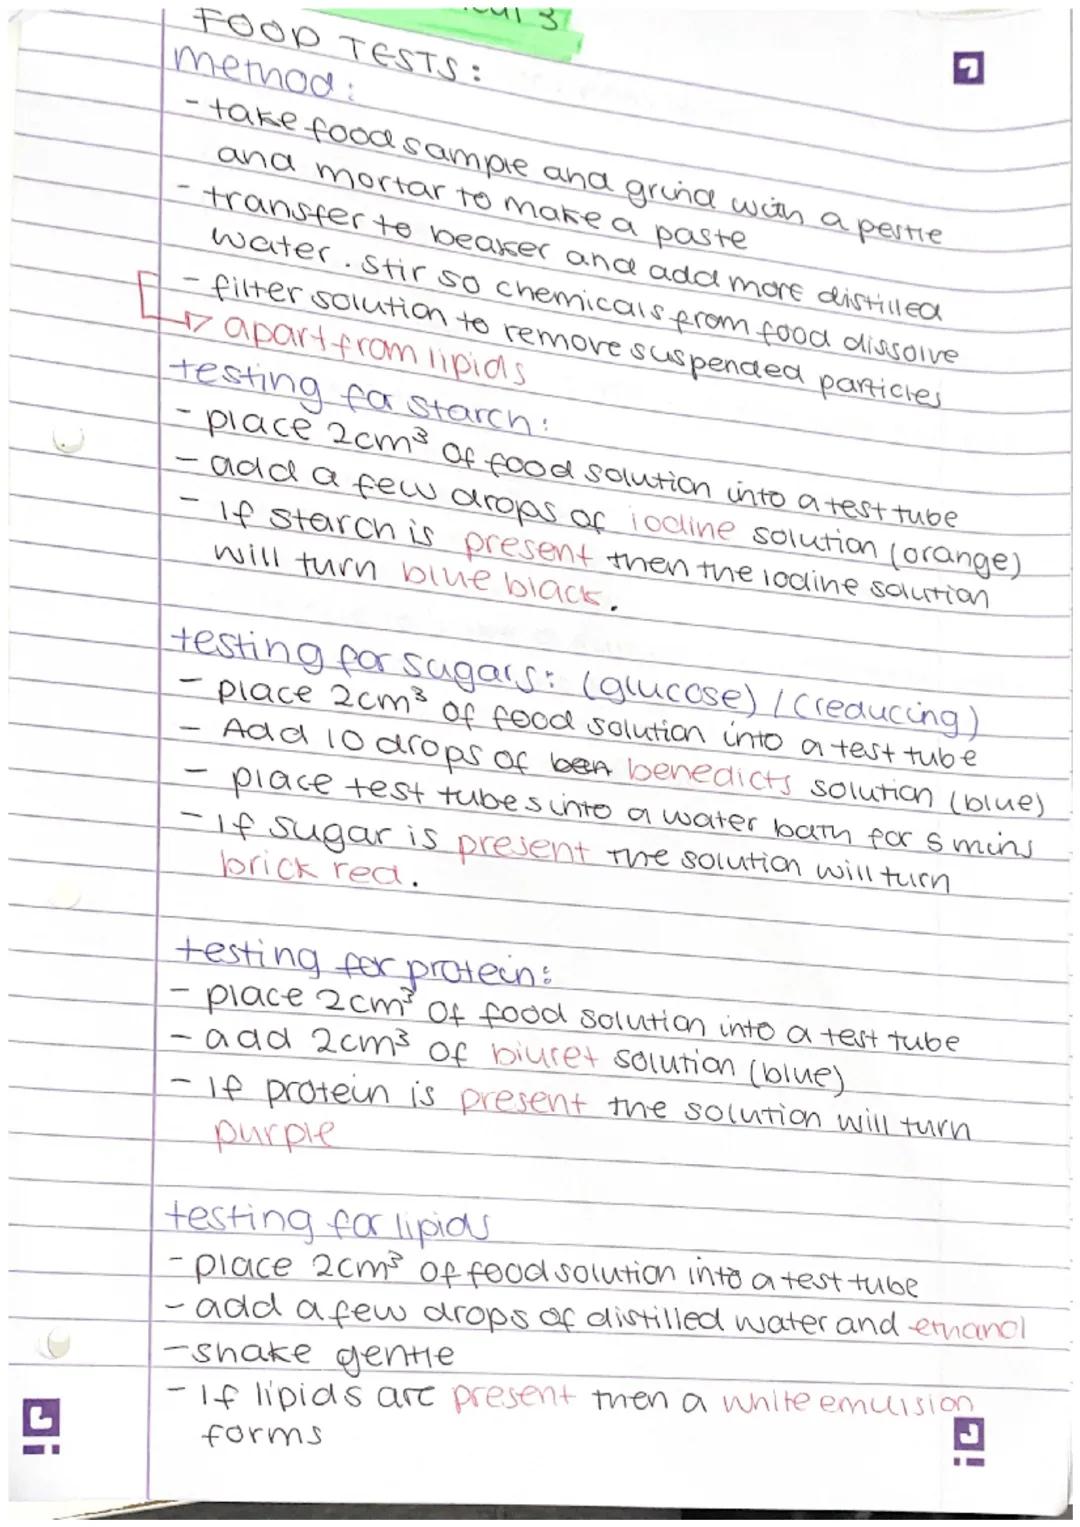 3
FOOD TESTS:
method:
- take food sample and grind with a pestle
and mortar to make a paste
- transfer to beaker and add more distilled
water. Stir so chemicals from food dissolve
- filter solution to remove suspended particles
apart from lipids
testing for starch:
- place 2cm³ of food solution into a test tube
- add a few drops of iodine solution (orange)
- if starch is present then the iodine solution
will turn blue black.
testing for sugars: (glucose) / (reducing)
- place 2cm³ of food solution into a test tube
- Add 10 drops of ben benedicts solution (blue)
- place test tubes into a water bath for 5 mins
- if sugar is present the solution will turn
brick red.
testing for protein:
- place 2cm³ of food solution into a test tube
- add 2cm³ of biuret solution (blue)
- if protein is present the solution will turn
purple
testing for lipids
- place 2cm³ of food solution into a test tube
- add a few drops of distilled water and ethanol
- shake gentle
- if lipids are present then a white emulsion
forms